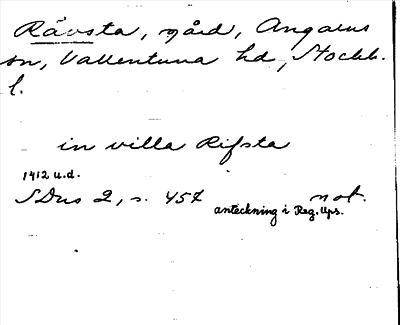 Rävsta, gård, Angarns
sn, Vallentuna hd, Stockh.
l.
in villa Rifsta
1412 u.d.
SDns 2, s. 457 not.
anteckning i Reg. Ups.